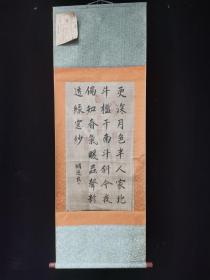 更深月色半人家北
斗欄干南斗斜今夜
偏知春氣暖蟲聲新
透綠窗紗
胡適